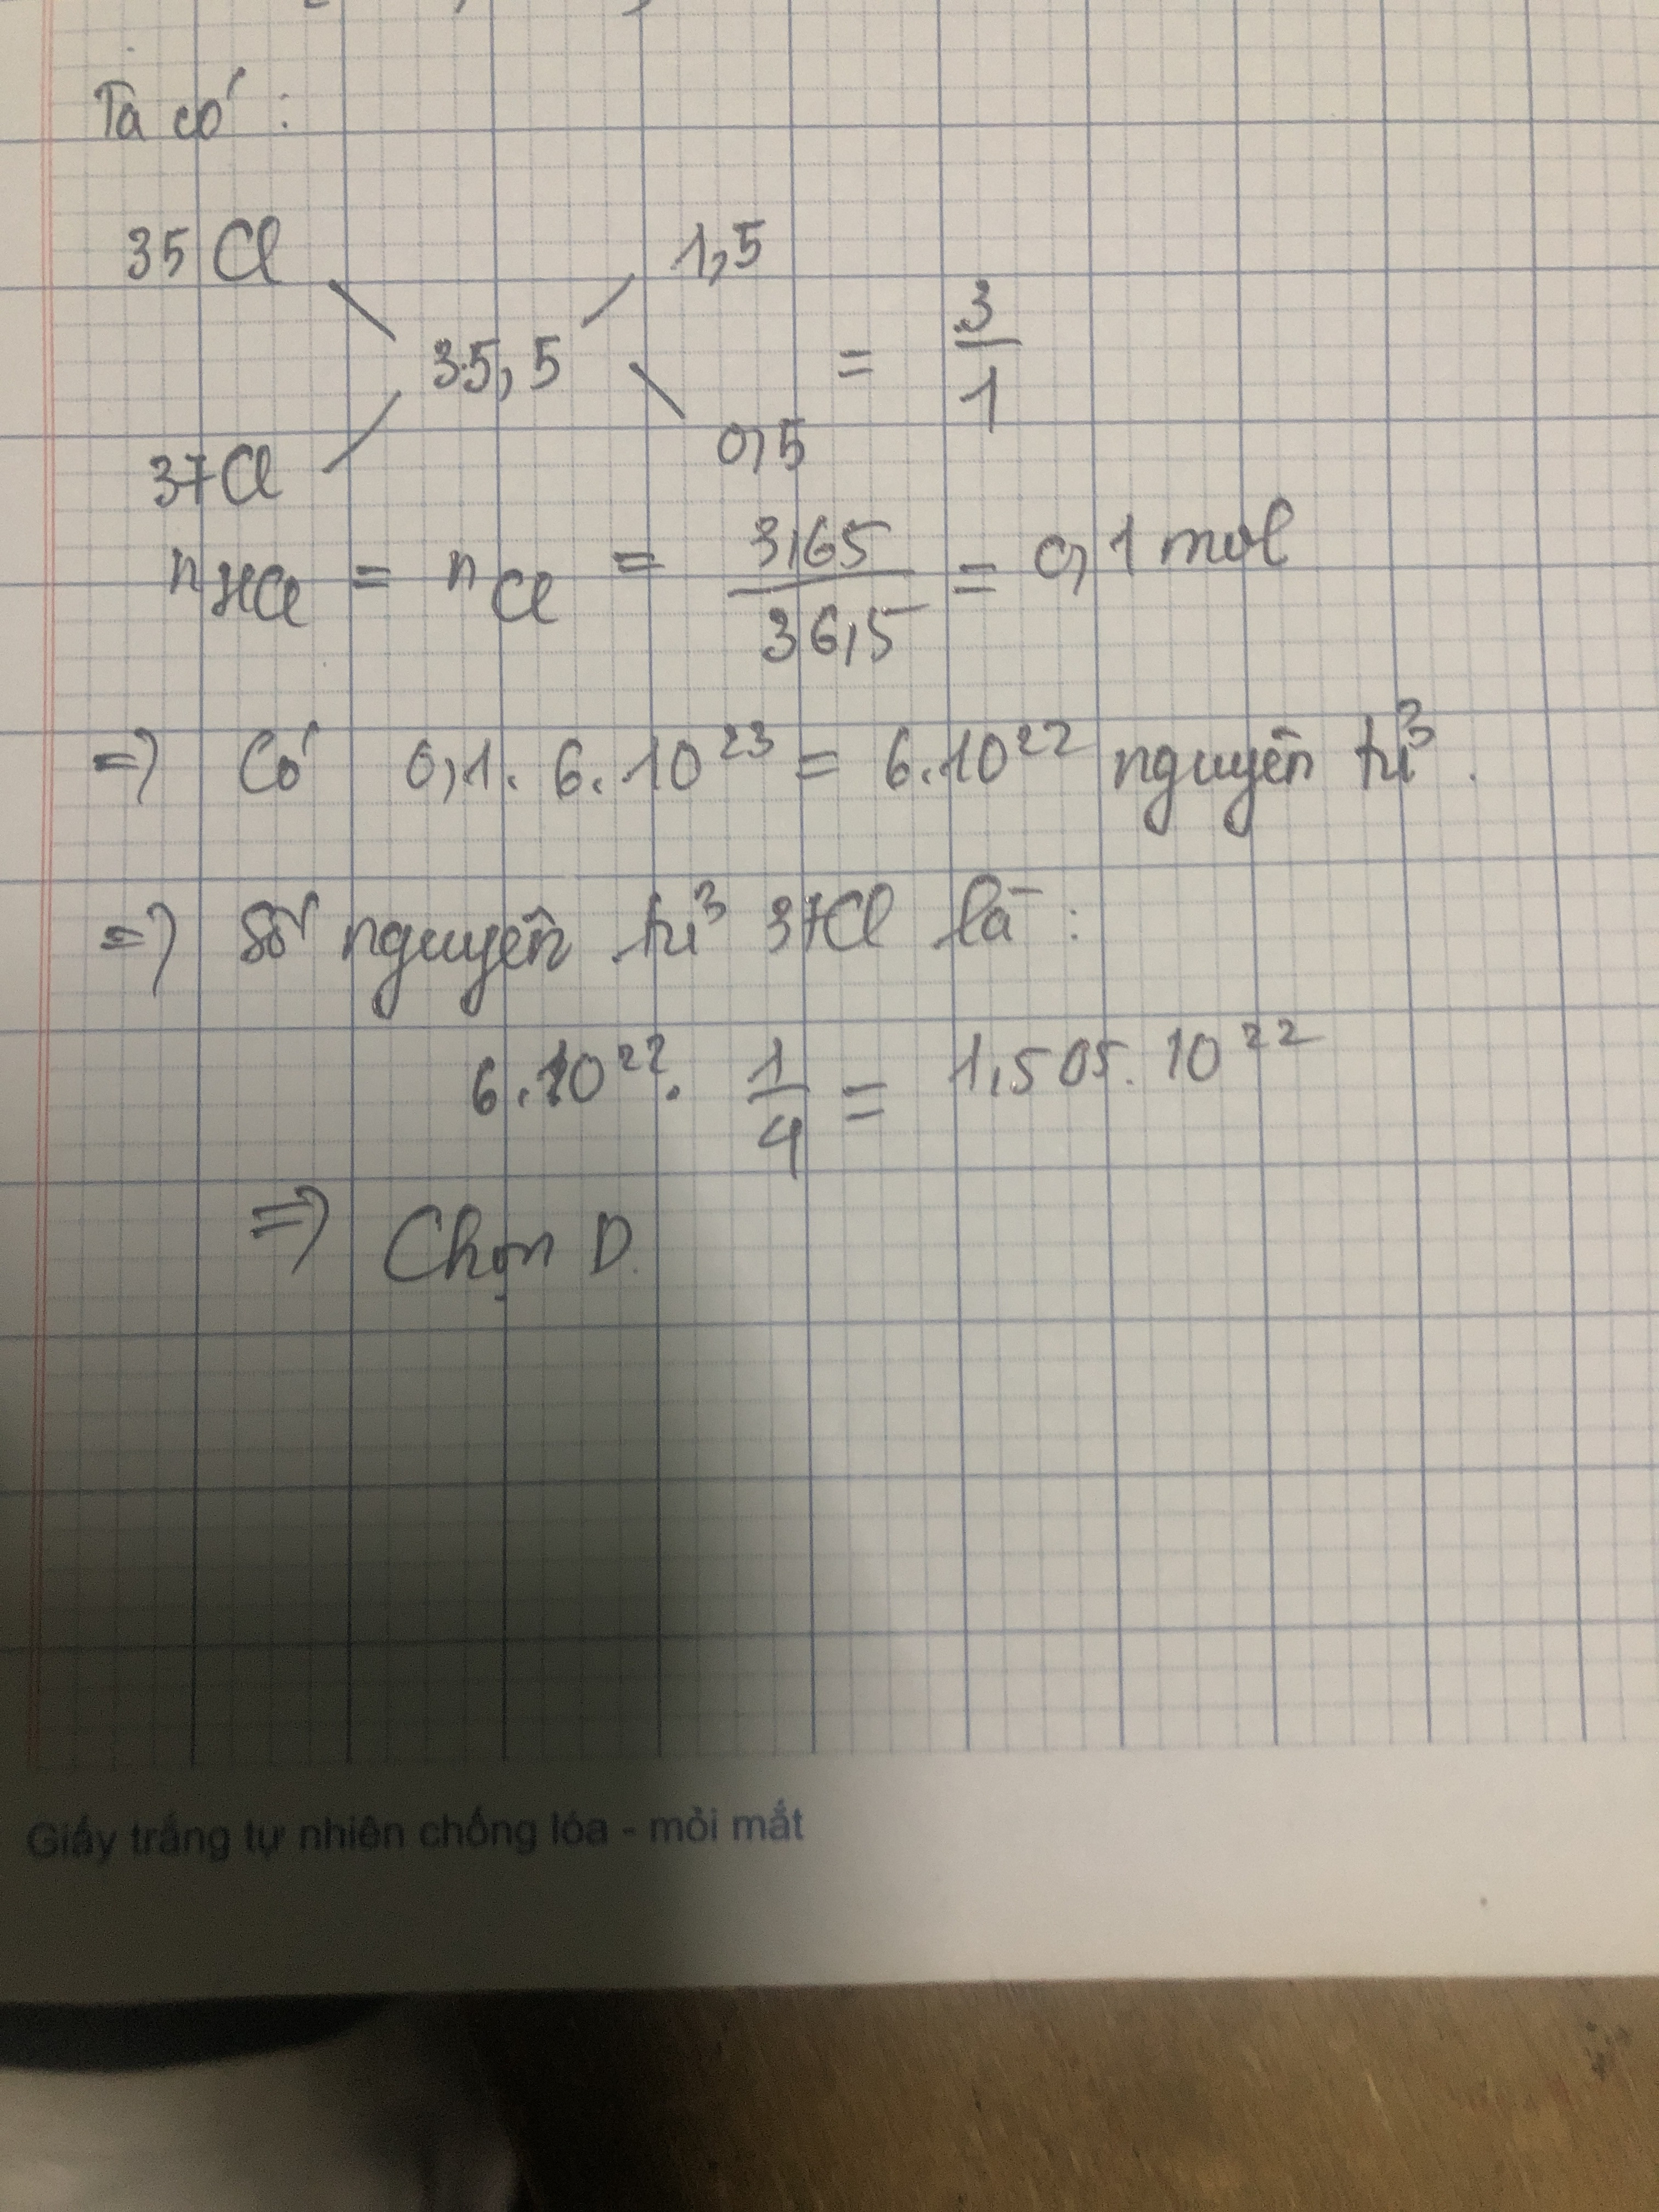 Ta có :
35 Cl 1,5
35,5 = 3/1
37Cl 0,5
nHCl = nCl = 3,65/36,5 = 0,1 mol
=> Có 0,1. 6. 10²³ = 6.10²² nguyên tử.
=> Số nguyên tử 37Cl là :
6.10²². 1/4 = 1,505. 10²²
=> Chọn D.
Giấy trắng tự nhiên chống lóa - mỏi mắt